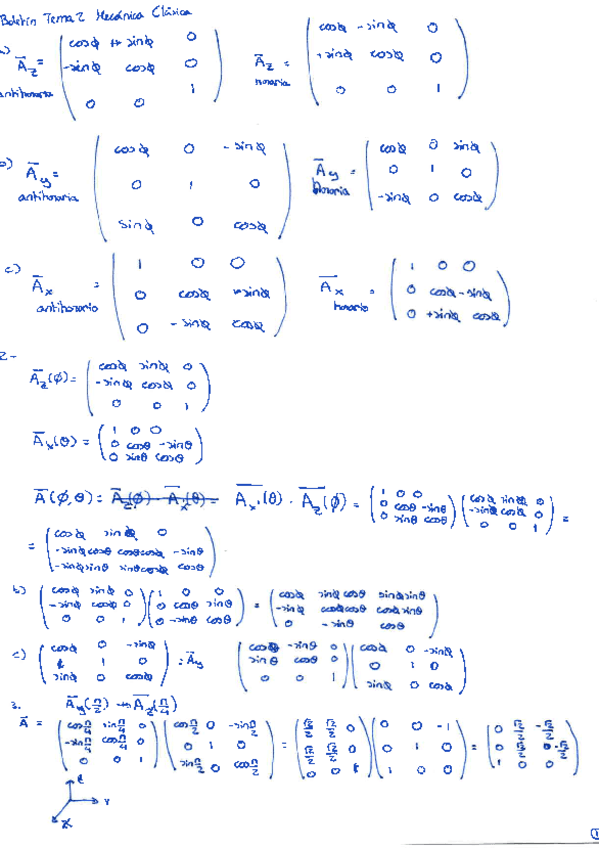 Boletín Tema 2 Mecánica Clásica
a) A̅z antihoraria = (cosϕ +sinϕ 0; -sinϕ cosϕ 0; 0 0 1) A̅z horaria = (cosϕ -sinϕ 0; +sinϕ cosϕ 0; 0 0 1)
b) A̅y antihoraria = (cosϕ 0 -sinϕ; 0 1 0; sinϕ 0 cosϕ) A̅y horaria = (cosϕ 0 sinϕ; 0 1 0; -sinϕ 0 cosϕ)
c) A̅x antihorario = (1 0 0; 0 cosϕ +sinϕ; 0 -sinϕ cosϕ) A̅x horario = (1 0 0; 0 cosϕ -sinϕ; 0 +sinϕ cosϕ)
2-
A̅z(ϕ) = (cosϕ sinϕ 0; -sinϕ cosϕ 0; 0 0 1)
A̅x(θ) = (1 0 0; 0 cosθ -sinθ; 0 sinθ cosθ)
A̅(ϕ,θ) = A̅z'(ϕ) · A̅x'(θ) = A̅x'(θ) · A̅z'(ϕ) = (1 0 0; 0 cosθ -sinθ; 0 sinθ cosθ)(cosϕ sinϕ 0; -sinϕ cosϕ 0; 0 0 1) =
= (cosϕ sinϕ 0; -sinϕcosθ cosθcosϕ -sinθ; -sinϕsinθ sinθcosϕ cosθ)
b) (cosϕ sinϕ 0; -sinϕ cosϕ 0; 0 0 1)(1 0 0; 0 cosθ sinθ; 0 -sinθ cosθ) = (cosϕ sinϕcosθ sinϕsinθ; -sinϕ cosϕcosθ cosϕsinθ; 0 -sinθ cosθ)
c) (cosϕ 0 -sinϕ; 1 0; sinϕ 0 cosϕ) = A̅y (cosθ -sinθ 0; sinθ cosθ 0; 0 0 1)(cosϕ 0 -sinϕ; 0 1 0; sinϕ 0 cosϕ)
3. A̅y(π/2) → A̅z(π/4)
A̅ = (cosπ/4 sinπ/4 0; -sinπ/4 cosπ/4 0; 0 0 1)(cosπ/2 0 -sinπ/2; 0 1 0; sinπ/2 0 cosπ/2) = (√2/2 √2/2 0; √2/2 √2/2 0; 0 0 1)(0 0 -1; 0 1 0; 1 0 0) = (0 √2/2 -√2/2; 0 √2/2 -√2/2; 1 0 0)
z
Y
X
1